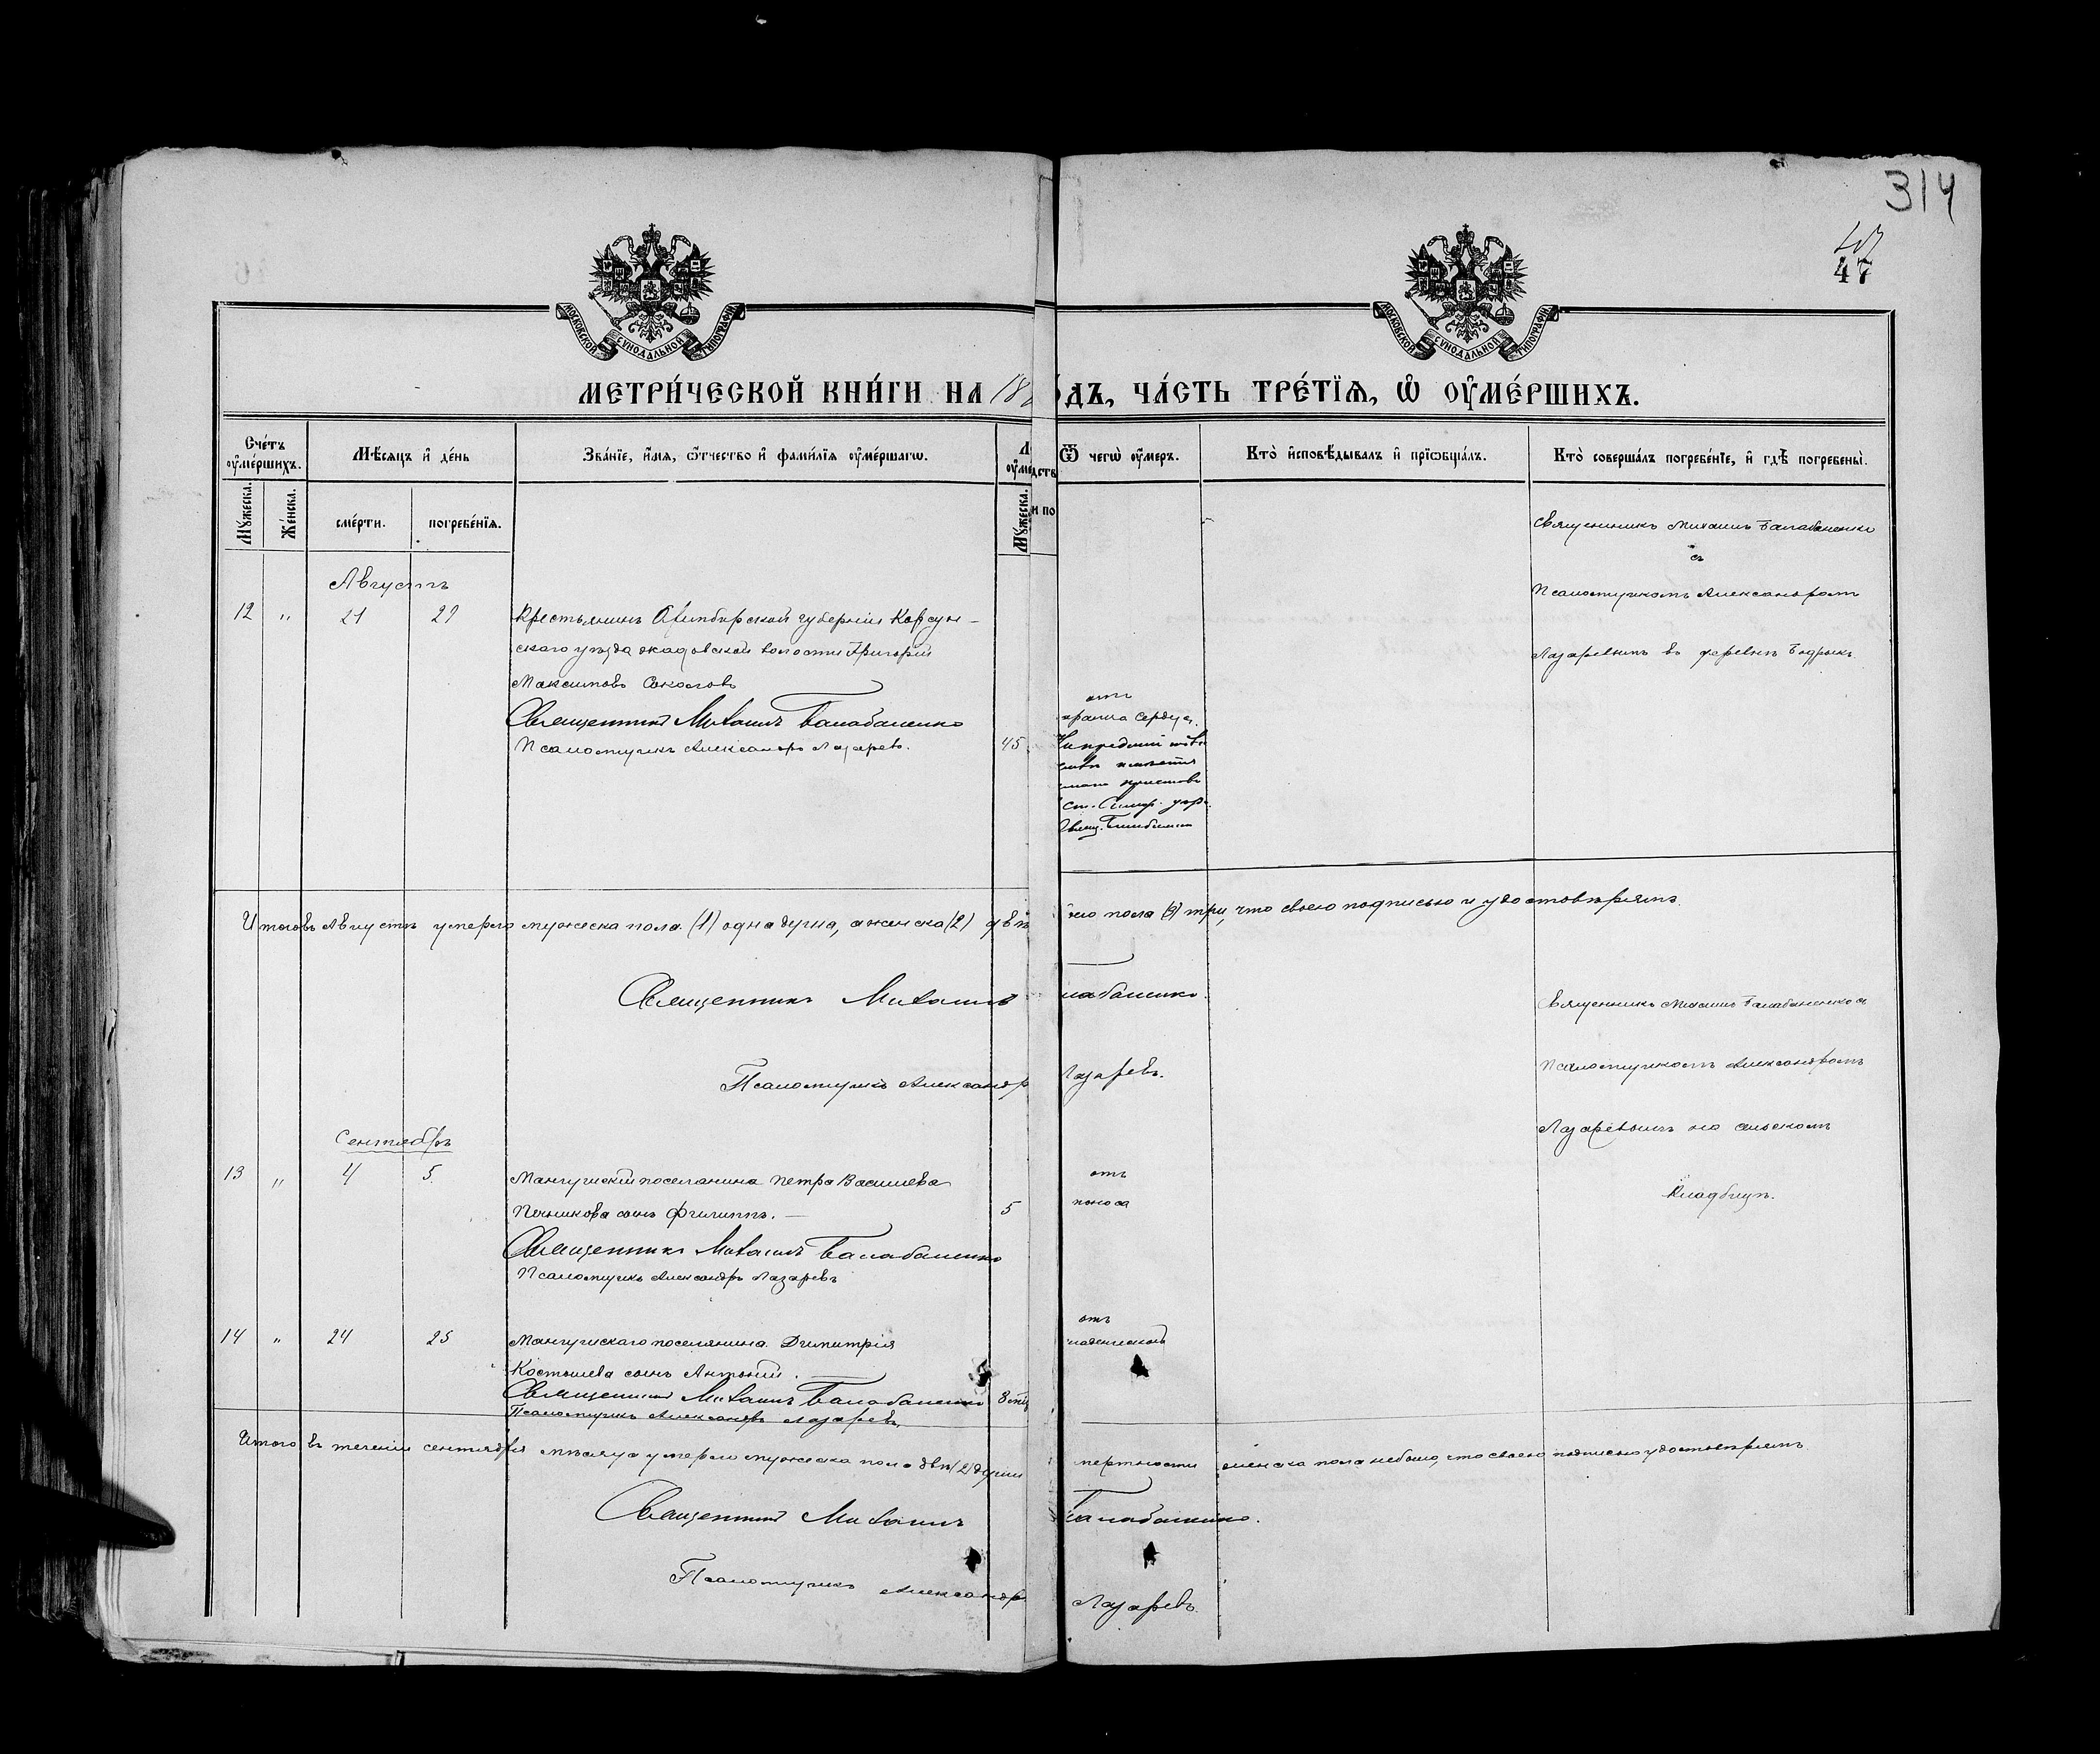 314
47
МОСКОВСКОЙ СѴНОДАЛЬНОЙ ТИПОГРАФІИ
МОСКОВСКОЙ СѴНОДАЛЬНОЙ ТИПОГРАФІИ
МЕТРИ́ЧЕСКОЙ КНИ́ГИ НА 18
ДЪ, ЧА́СТЬ ТРЕ́ТЇѦ, Ѡ҆ ОУ҆МЕ́РШИХЪ.
Сче́тъ оу҆ме́ршихъ.
Мѣ́сяцъ и҆ де́нь
Зва́нїе, и҆́мѧ, ѻ҆́тчество и҆ фами́лїѧ оу҆ме́ршагѡ.
Ѿ чегѡ̀ оу҆́меръ.
Кто̀ и҆сповѣ́дывалъ и҆ прїѡбща́лъ.
Кто̀ соверша́лъ погребе́нїе, и҆ гдѣ̀ погребены̀.
Мꙋ́жеска.
Же́нска.
сме́рти.
погребе́нїѧ.
Мꙋ́жеска.
и по
Августъ
12 " 21 29 Крестьянинъ Симбирской губерніи Корсун-
скаго уѣзда волости Григорій
Максимовъ Соколовъ
Священникъ Михаилъ Балабаненко
Псаломщикъ Александръ Лазаревъ. 45
отъ
сердца.
Священникъ Михаилъ Балабаненко
съ
Псаломщикомъ Александромъ
Лазаревымъ въ деревнѣ Бодракъ.
Итого въ Августѣ умерло мужеска пола (1) одна душа, а женска (2) двѣ
его пола (3) три, что своею подписью и удостовѣряемъ.
Священникъ Михаилъ
лабаненко.
Псаломщикъ Александр
Лазаревъ.
Сентябрь
13 " 4 5 Мангушскій поселянина Петра Васильева
сынъ Филиппъ. — 5
Священникъ Михаилъ Балабаненко
Псаломщикъ Александръ Лазаревъ
отъ
поноса
Священникъ Михаилъ Балабаненко съ
Псаломщикомъ Александромъ
Лазаревымъ на сельскомъ
Кладбищѣ.
14 " 24 25 Мангушскаго поселянина Димитрія
сынъ Антоній. —
Священникъ Михаилъ Балабаненко 3
Псаломщикъ Александръ Лазаревъ
отъ
Итого въ теченіи сентября мѣсяца умерло мужеска пола двѣ (2) души
смертности женска пола небыло, что своею подписью удостовѣряемъ
Священникъ Михаилъ
Балабаненко.
Псаломщикъ Александр
Лазаревъ.